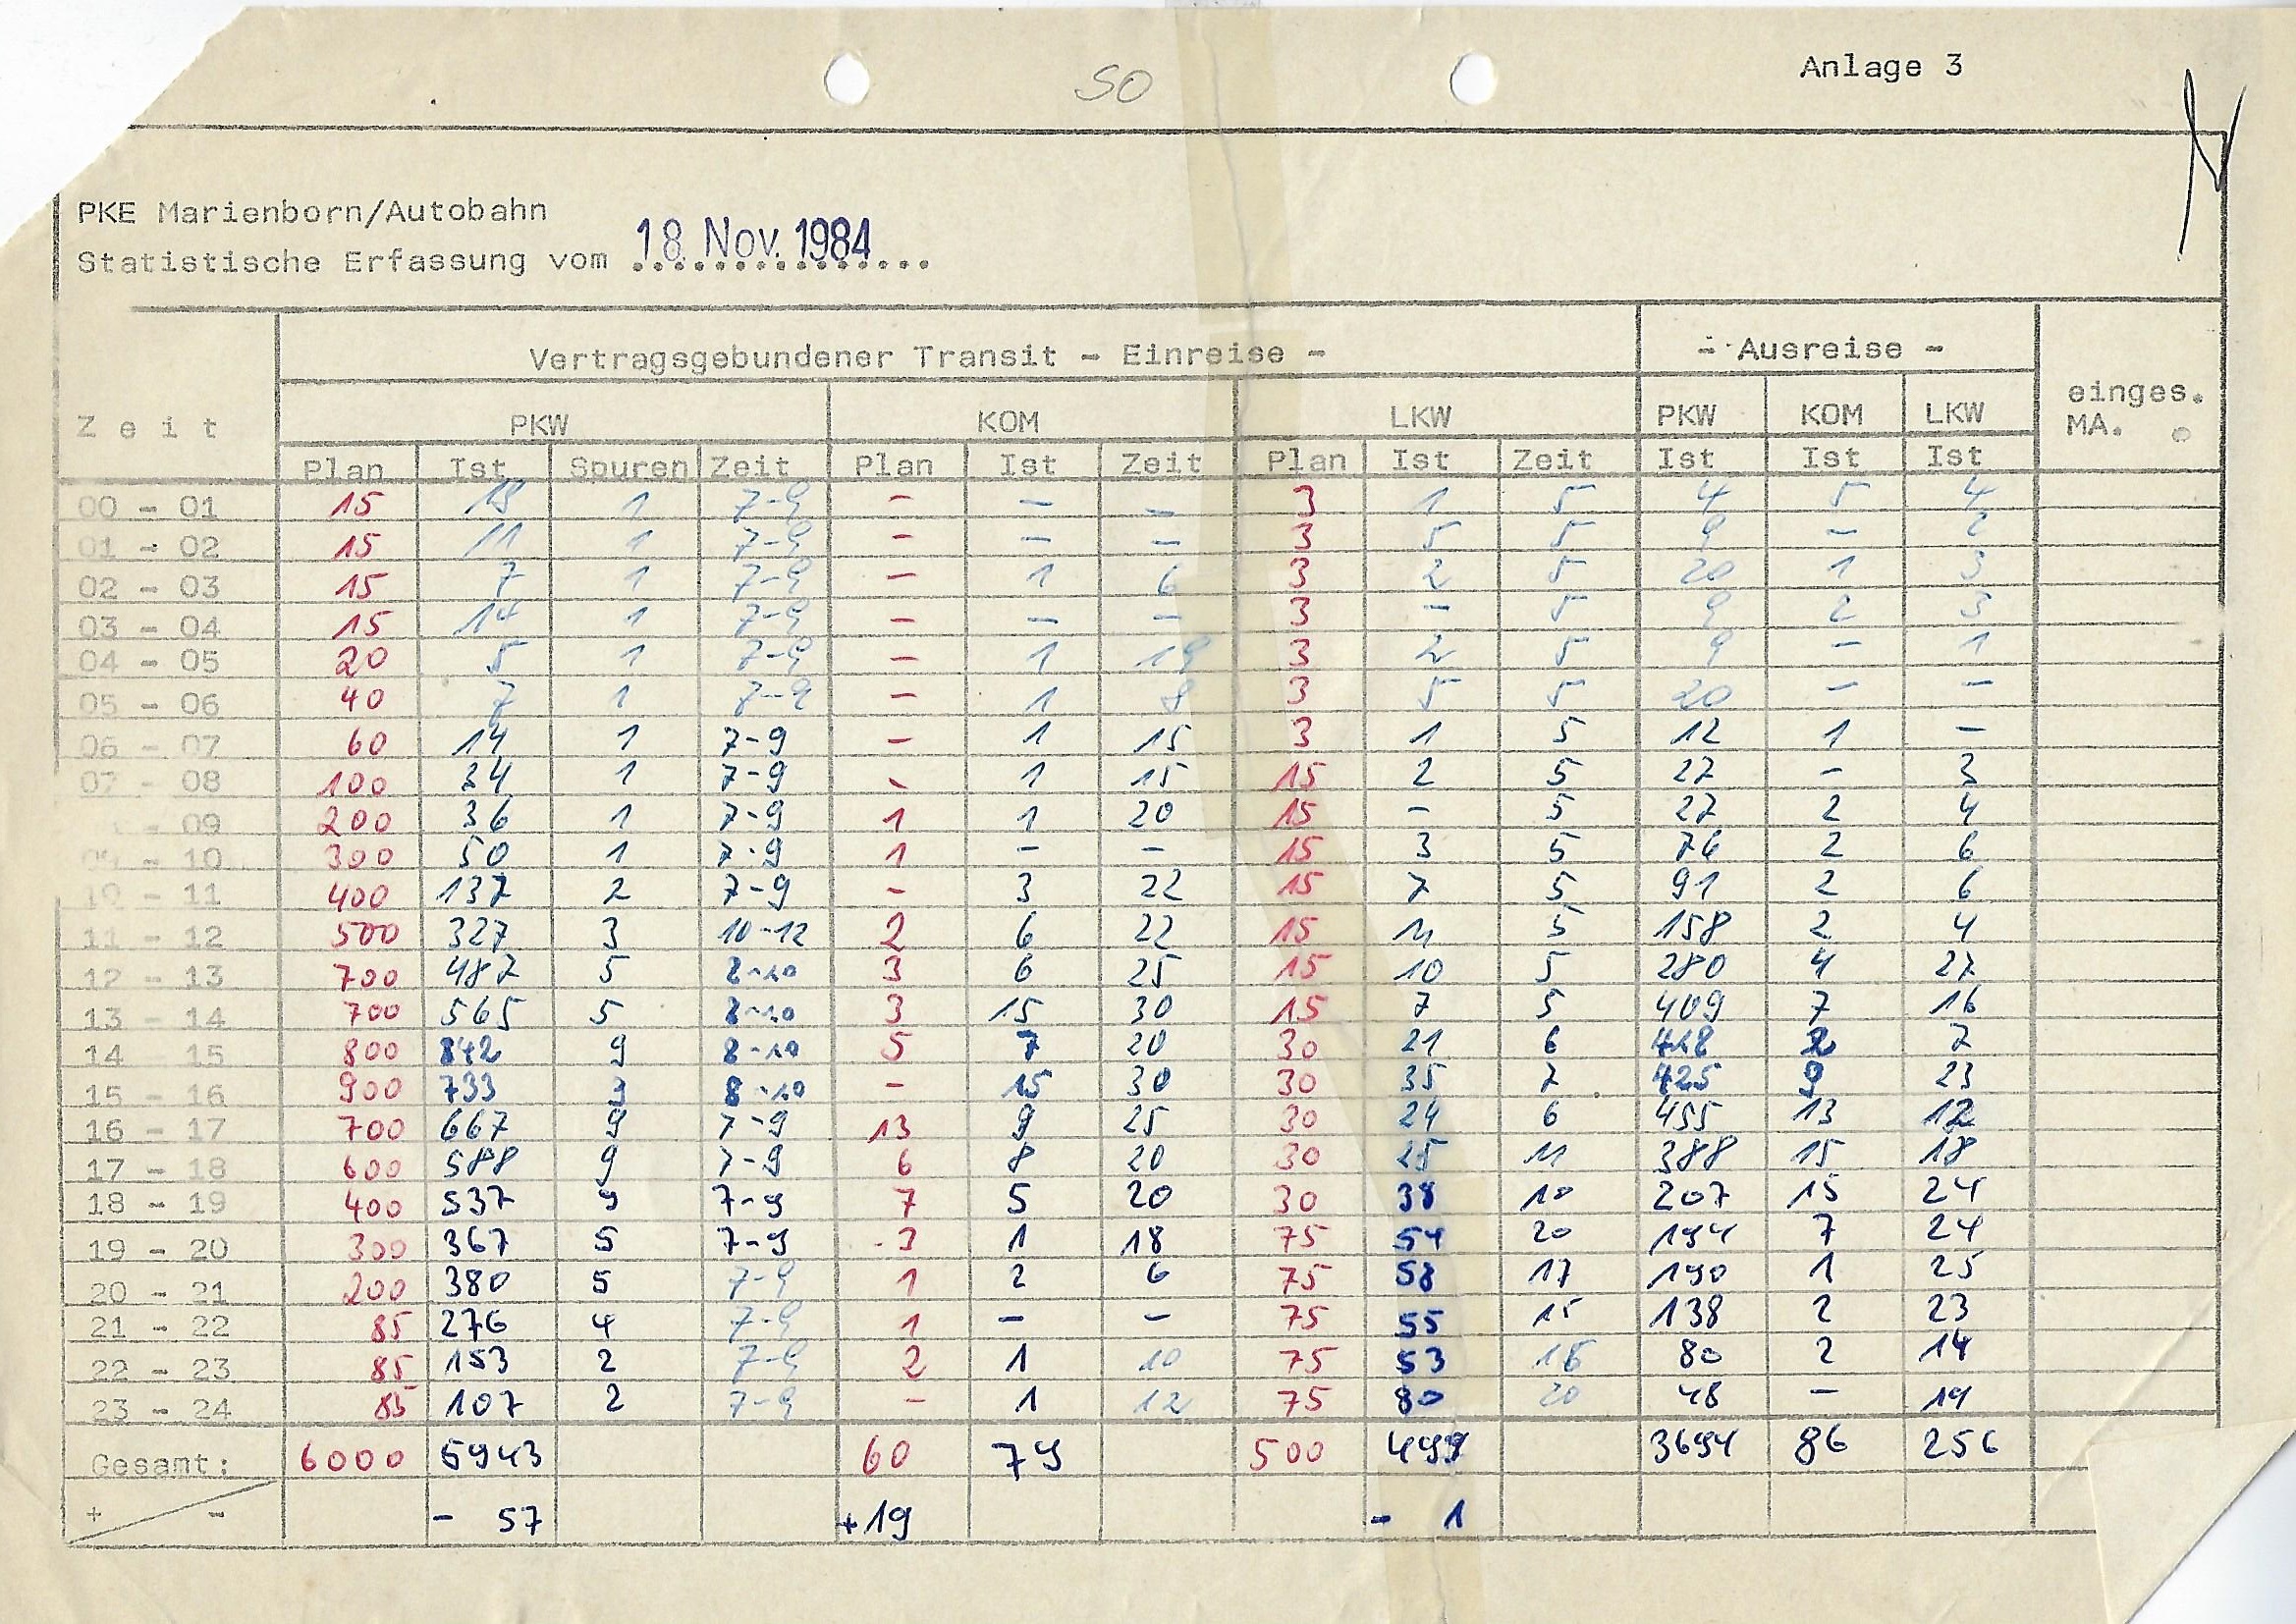 SO
Anlage 3
PKE Marienborn/Autobahn
Statistische Erfassung vom 18. Nov. 1984
Vertragsgebundener Transit - Einreise - - Ausreise -
Zeit PKW KOM LKW PKW KOM LKW einges. MA.
Plan Ist Spuren Zeit Plan Ist Zeit Plan Ist Zeit Ist Ist Ist
00 - 01 15 1 7-9 - - - 3 1 5 4 5 4
01 - 02 15 11 1 7-9 - - - 3 5 5 9 - 2
02 - 03 15 7 1 7-9 - 1 6 3 2 5 20 1 3
03 - 04 15 14 1 7-9 - - - 3 - 5 9 2 3
04 - 05 20 5 1 7-9 - 1 19 3 2 5 9 - 1
05 - 06 40 7 1 7-9 - 1 8 3 5 5 20 - -
06 - 07 60 14 1 7-9 - 1 15 3 1 5 12 1 -
07 - 08 100 34 1 7-9 - 1 15 15 2 5 27 - 3
- 09 200 36 1 7-9 1 1 20 15 - 5 27 2 4
09 - 10 300 50 1 7-9 1 - - 15 3 5 76 2 6
10 - 11 400 137 2 7-9 - 3 22 15 7 5 91 2 6
11 - 12 500 327 3 10-12 2 6 22 15 11 5 158 2 4
12 - 13 700 487 5 8-10 3 6 25 15 10 5 280 4 27
13 - 14 700 565 5 8-10 3 15 30 15 7 5 409 7 16
14 15 800 842 9 8-10 5 7 20 30 21 6 428 2 7
15 - 16 900 733 9 8-10 - 15 30 30 35 7 425 9 23
16 - 17 700 667 9 7-9 13 9 25 30 24 6 455 13 12
17 - 18 600 588 9 7-9 6 8 20 30 25 11 388 15 18
18 - 19 400 537 9 7-9 7 5 20 30 38 10 207 15 24
19 - 20 300 367 5 7-9 3 1 18 75 54 20 194 7 24
20 - 21 200 380 5 7-9 1 2 6 75 58 17 190 1 25
21 - 22 85 276 4 7-9 1 - - 75 55 15 138 2 23
22 - 23 85 153 2 7-9 2 1 10 75 53 16 80 2 14
23 - 24 85 107 2 7-9 - 1 12 75 80 20 48 - 19
Gesamt: 6000 5943 60 79 500 499 3694 86 256
+ - - 57 +19 - 1